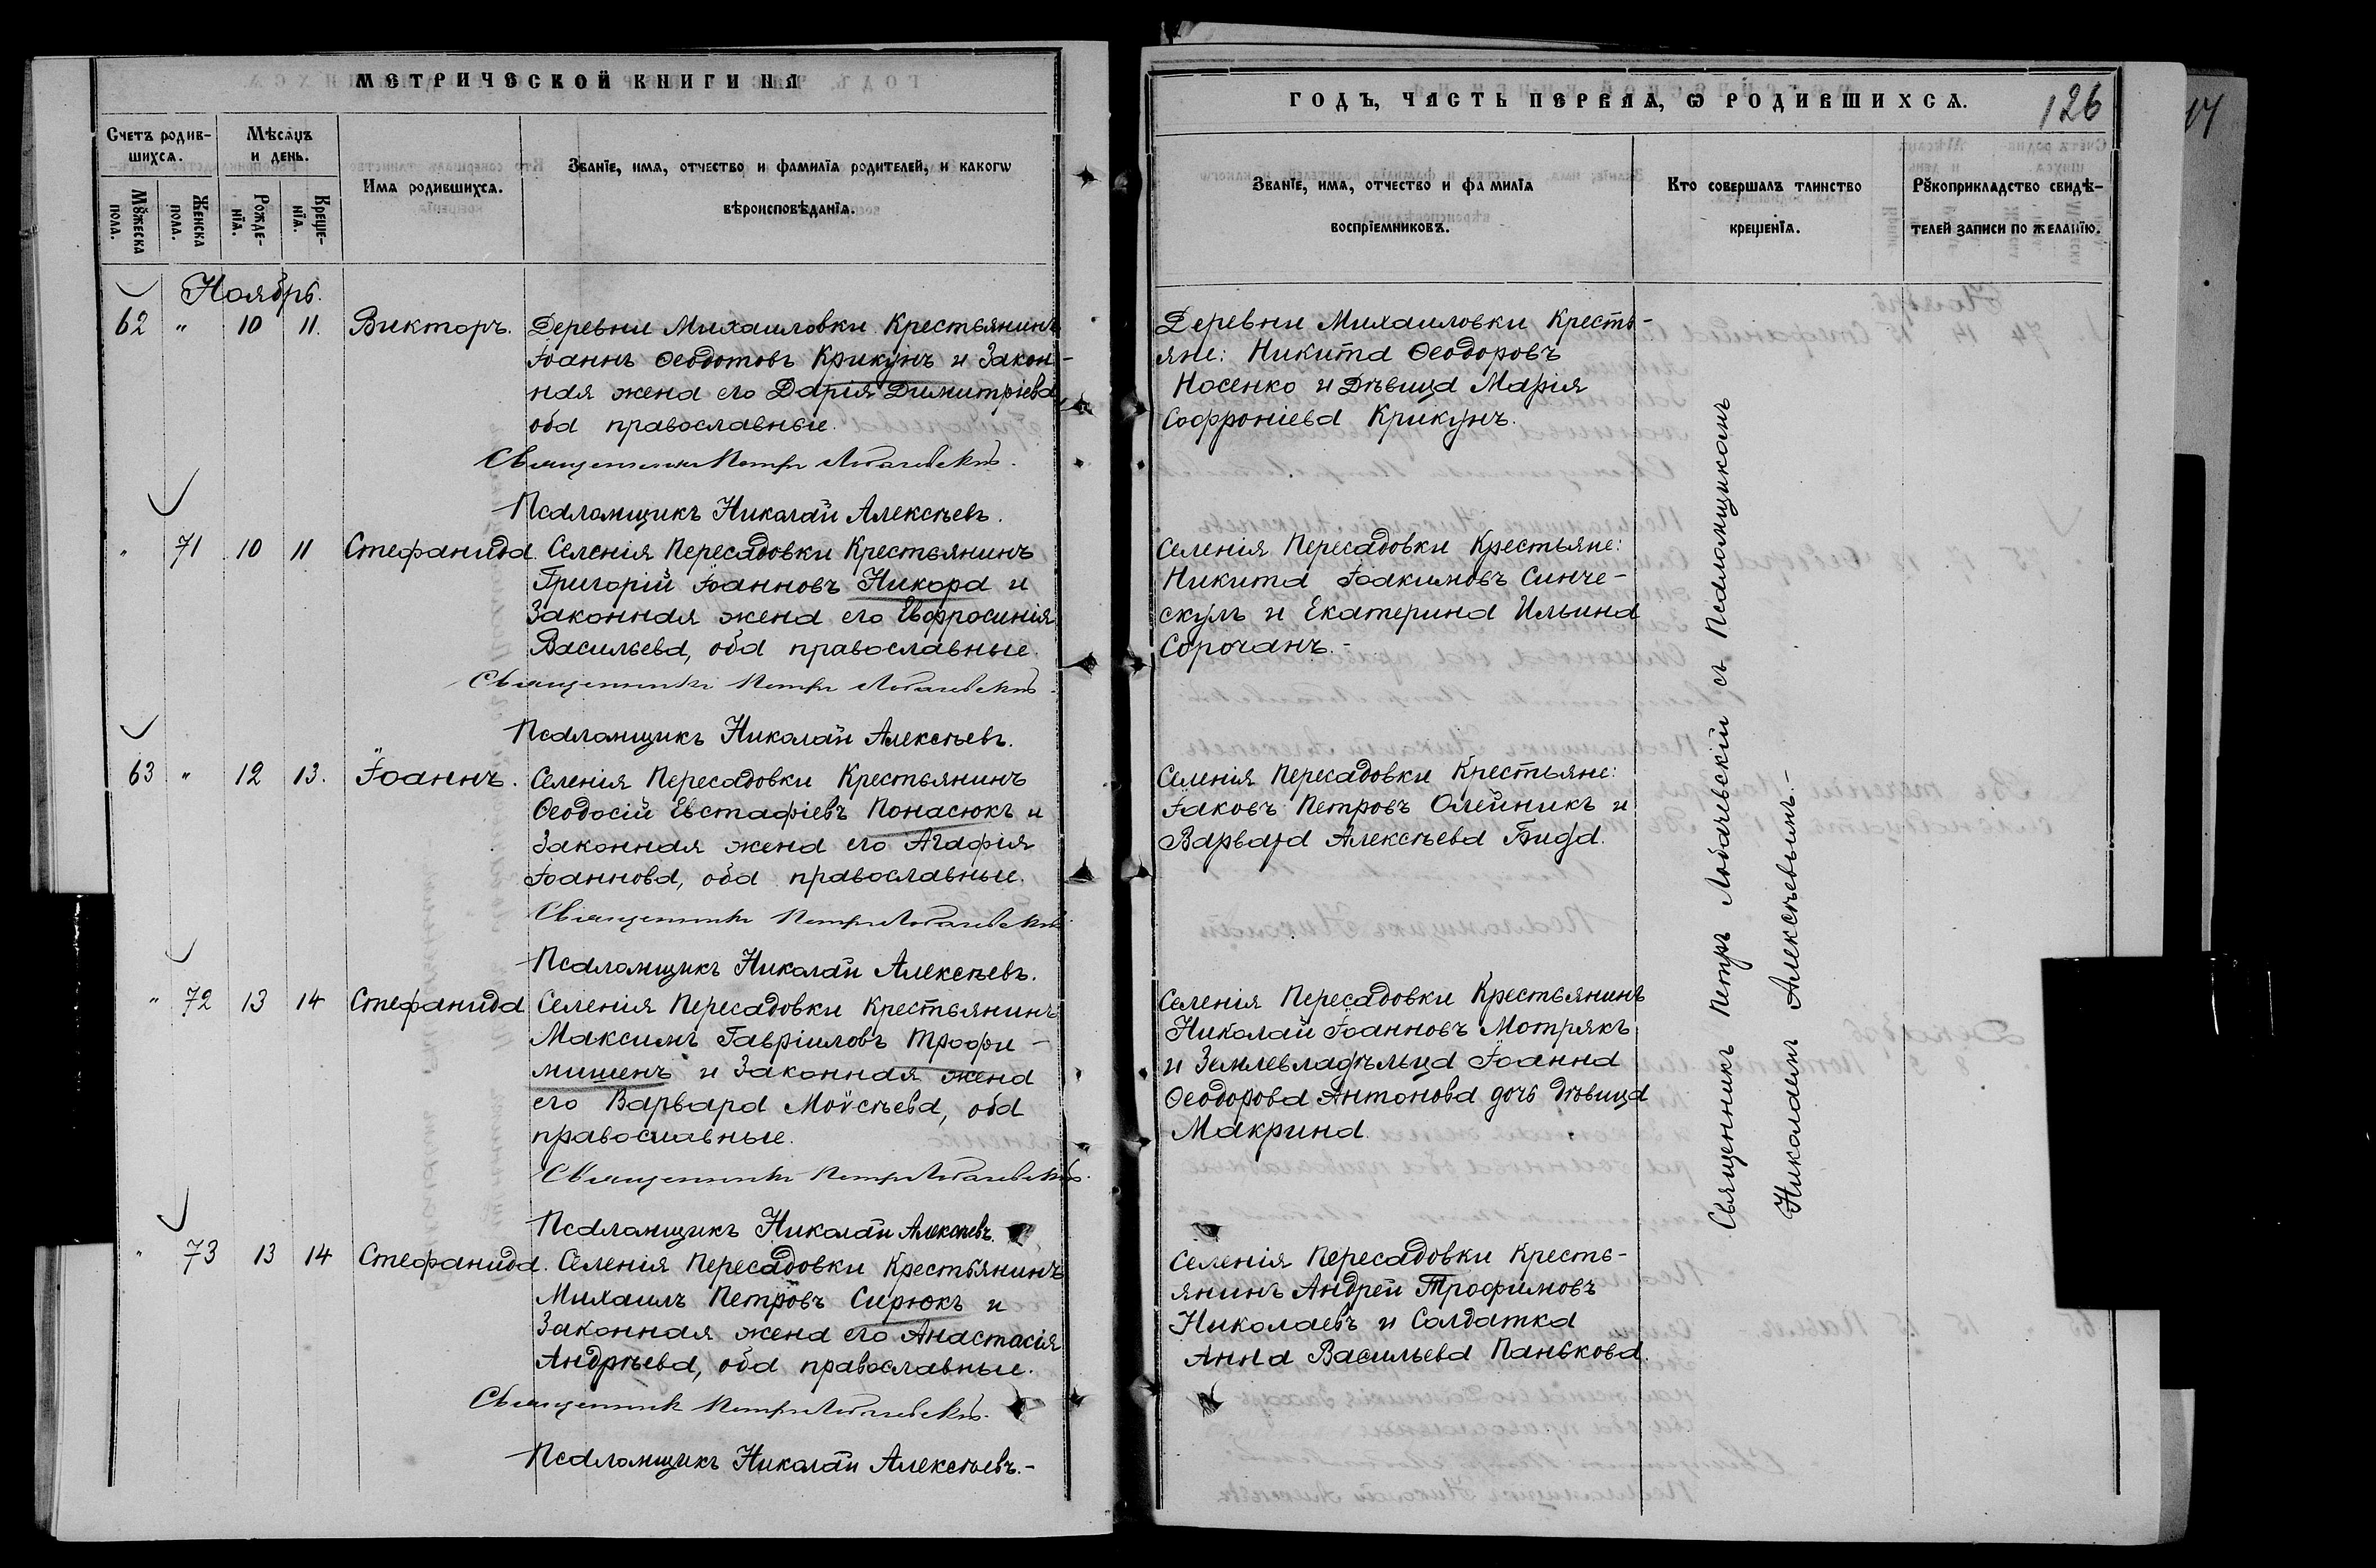 МЕТРИЧЕСКОЙ КНИГИ НА
Счетъ родив-
шихсѧ.
Мѣсѧцъ
и день.
Имѧ родившихсѧ.
Званїе, имѧ, отчество и фамилїѧ родителей, и какогѡ
вѣроисповѣданїѧ.
Мꙋжеска
пола.
Женска
пола.
Рожде-
нїѧ.
Креще-
нїѧ.
Ноябрь.
62 " 10 11. Викторъ. Деревни Михаиловки Крестьянинъ
Іоаннъ Ѳеодотовъ Крикунъ и Закон-
ная жена его Дарія Димитріева
оба православные.
Священникъ Петръ Лобачевскій.
Псаломщикъ Николай Алексѣевъ.
" 71 10 11 Стефанида. Селенія Пересадовки Крестьянинъ
Григорій Іоанновъ Никора и
Законная жена его Евфросинія
Васильева, оба православные.
Священникъ Петръ Лобачевскій.
Псаломщикъ Николай Алексѣевъ.
63 " 12 13. Іоаннъ. Селенія Пересадовки Крестьянинъ
Ѳеодосій Евстафіевъ Понасюкъ и
Законная жена его Агафія
Іоаннова, оба православные.
Священникъ Петръ Лобачевскій
Псаломщикъ Николай Алексѣевъ.
" 72 13 14 Стефанида Селенія Пересадовки Крестьянинъ
Максимъ Гавріиловъ Трофи-
мишенъ и Законная жена
его Варвара Моѵсѣева, оба
православные.
Священникъ Петръ Лобачевскій.
Псаломщикъ Николай Алексѣевъ.
" 73 13 14 Стефанида. Селенія Пересадовки Крестьянинъ
Михаилъ Петровъ Сирюкъ и
Законная жена его Анастасія
Андрѣева, оба православные.
Священникъ Петръ Лобачевскій.
Псаломщикъ Николай Алексѣевъ.-
ГОДЪ, ЧАСТЬ ПЕРВАѦ, Ѡ РОДИВШИХСѦ.
126
Званїе, имѧ, отчество и фамилїѧ
воспрїемниковъ.
Кто совершалъ таинство
крещенїѧ.
Рꙋкоприкладство свидѣ-
телей записи по желанїю.
Деревни Михаиловки Кресть-
яне: Никита Ѳеодоровъ
Носенко и Дѣвица Марія
Софроніева Крикунъ.
Селенія Пересадовки Крестьяне:
Никита Іоакимовъ Синче-
скулъ и Екатерина Ильина
Сорочанъ.-
Селенія Пересадовки Крестьяне:
Іаковъ Петровъ Олейникъ и
Варвара Алексѣева Бида.
Селенія Пересадовки Крестьянинъ
Николай Іоанновъ Мотрякъ
и Землевладѣльца Іоанна
Ѳеодорова Антонова дочь дѣвица
Макрина.
Селенія Пересадовки Кресть-
янинъ Андрей Трофимовъ
Николаевъ и Солдатка
Анна Васильева Панькова.
Священникъ Петръ Лобачевскій съ Псаломщикомъ
Николаемъ Алексѣевымъ.-